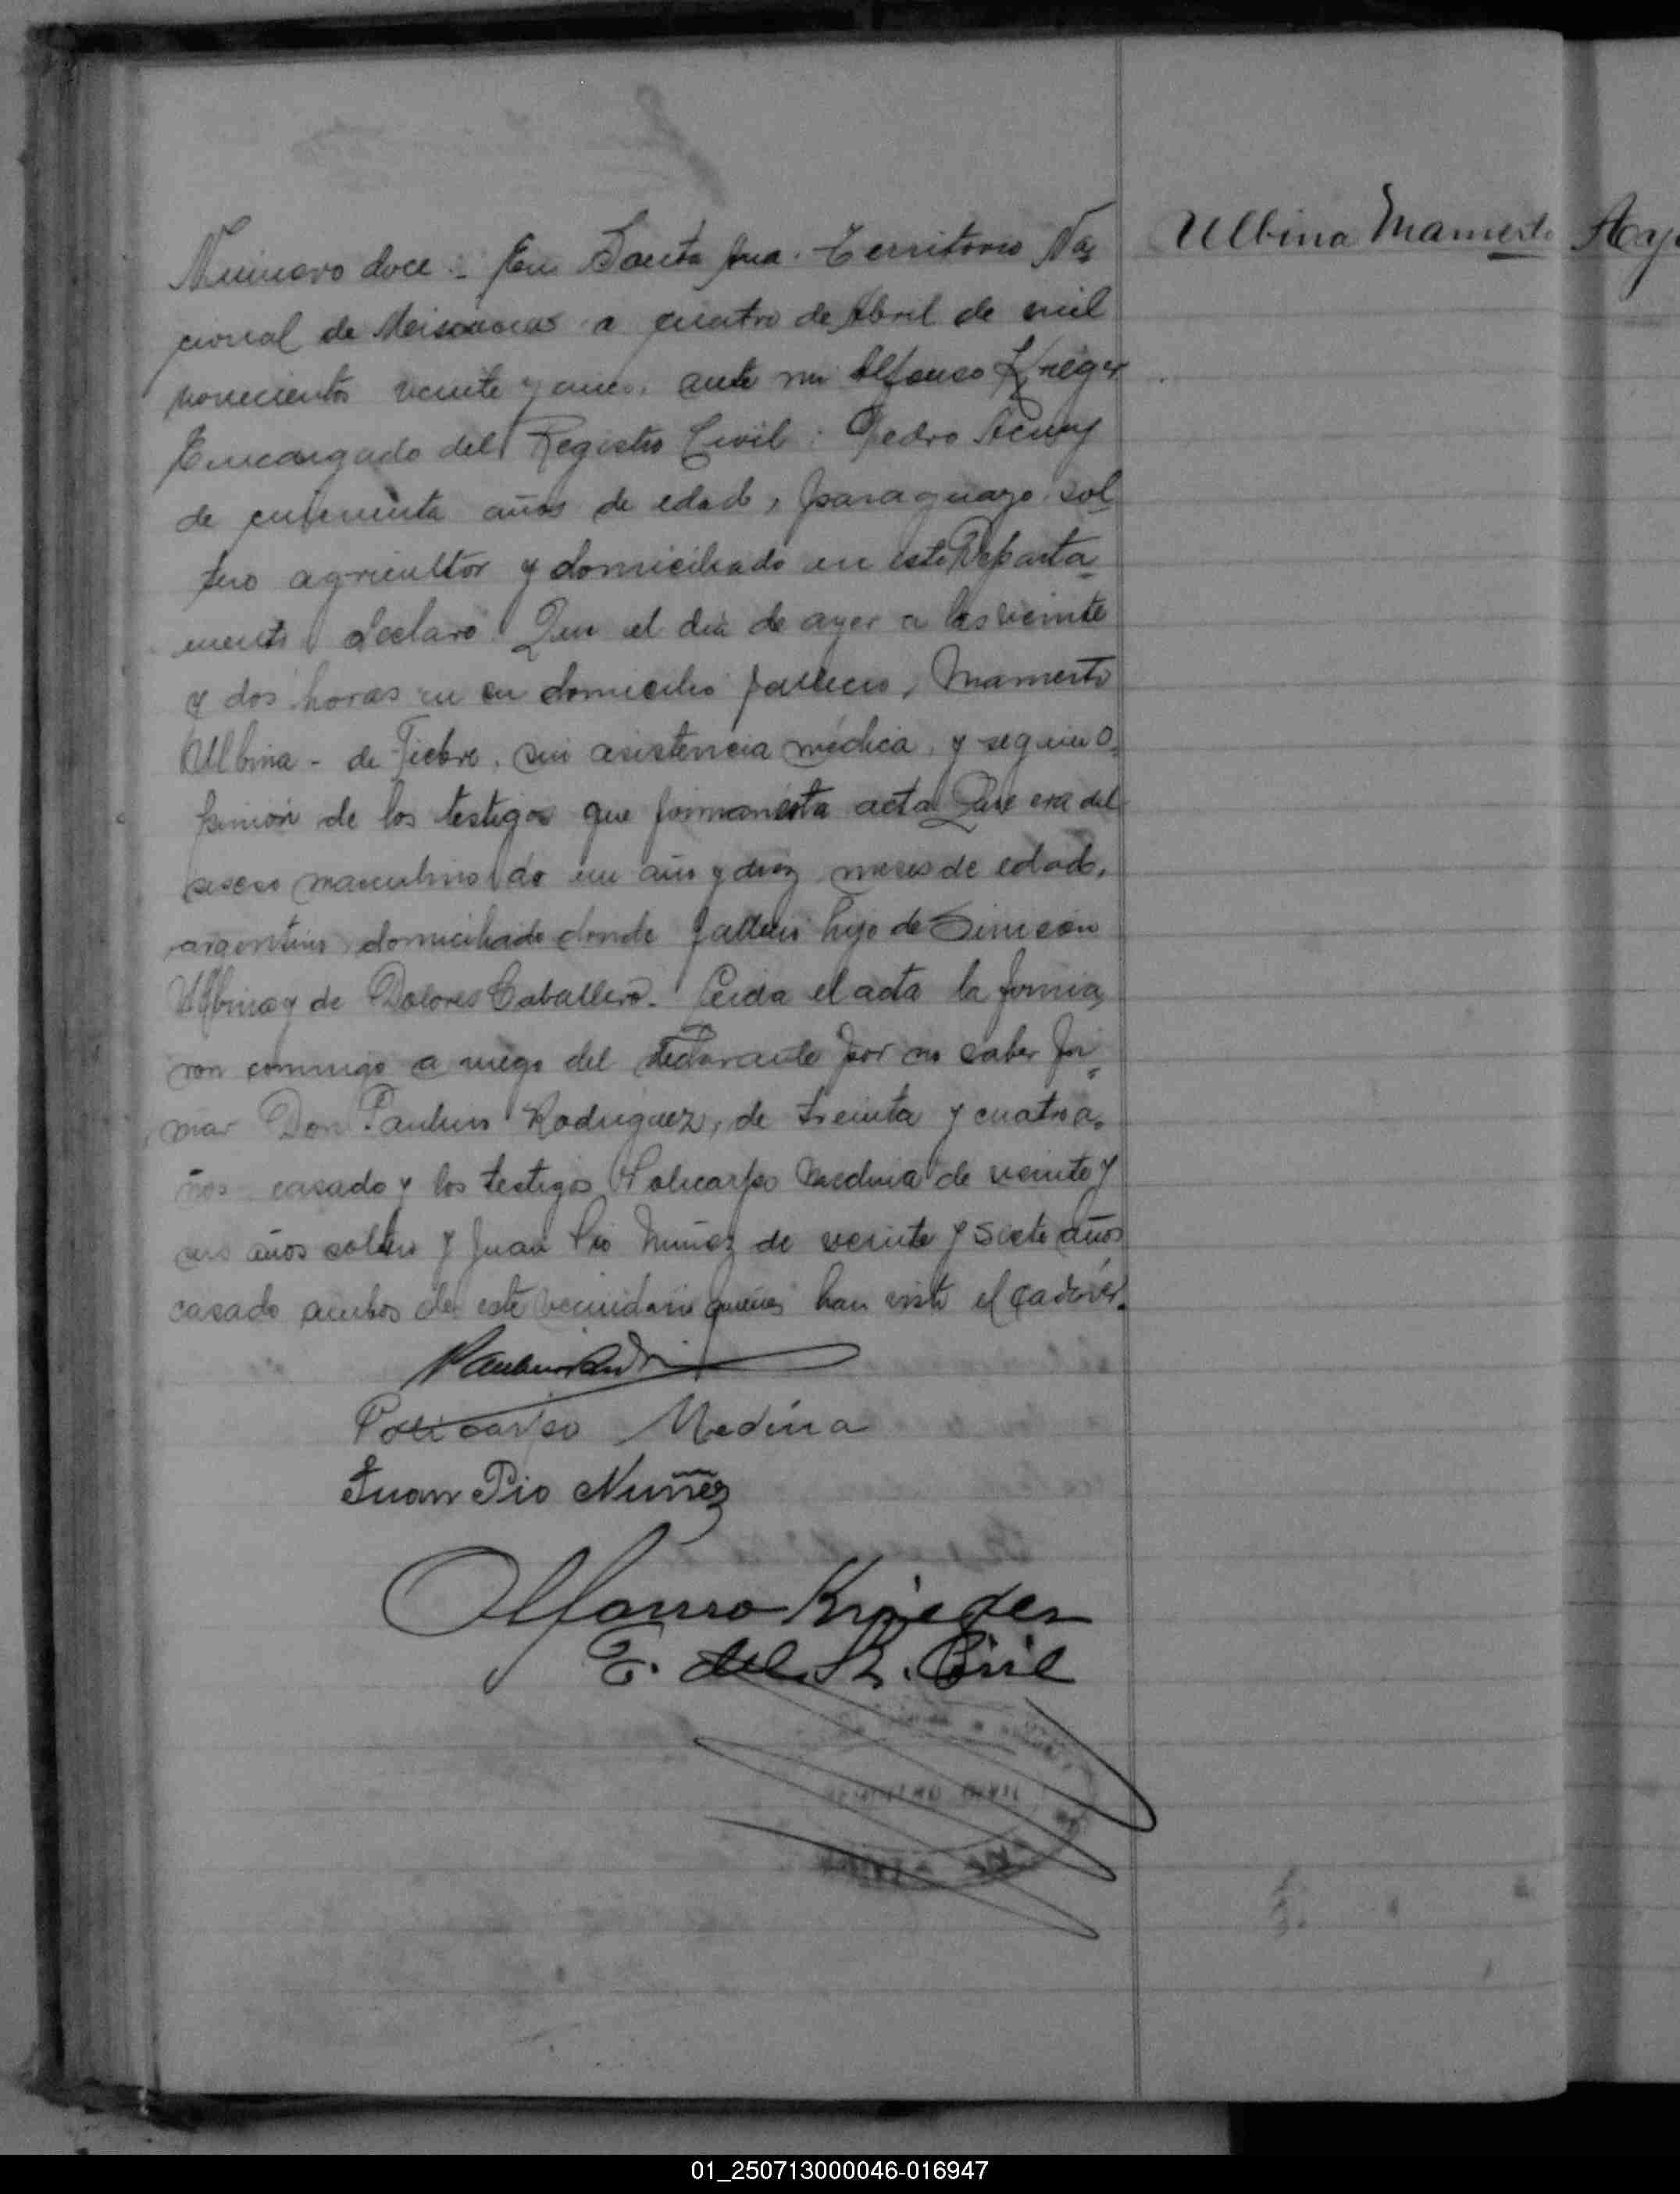 Ulbina Mamerto
Numero doce.- En Santa Ana. Territorio Na=
cional de Misiones a cuatro de Abril de mil
novecientos veinte y cinco. ante mi Alfonso Krieger
Encargado del Registro Civil: Pedro Acuny
de cincuenta años de edad, paraguayo sol
tero agricultor y domiciliado en este Departa=
mento declaro: Que el dia de ayer a las veinte
y dos horas en su domicilio fallecio, Mamerto
Ulbina - de Fiebre, sin asistencia médica, y segun o=
pinion de los testigos que firman esta acta Que era del
sexso masculino de un año y diez meses de edad,
argentino domiciliado donde fallecio hijo de Simeon
Ulbina y de Dolores Caballero.- Leida el acta la firma
ron conmigo a ruego del declarante por no saber fir=
mar Don Paulino Rodriguez, de treinta y cuatro a=
ños casado y los testigos Policarpo Medina de veinte y
seis años soltero y Juan Pio Nuñez de veinte y siete años
casado ambos de este vecindario quienes han visto el cadaver.
Policarpo Medina
Juan Pio Nuñez
Alfonso Krieger
E. del R. Civil
01_250713000046-016947